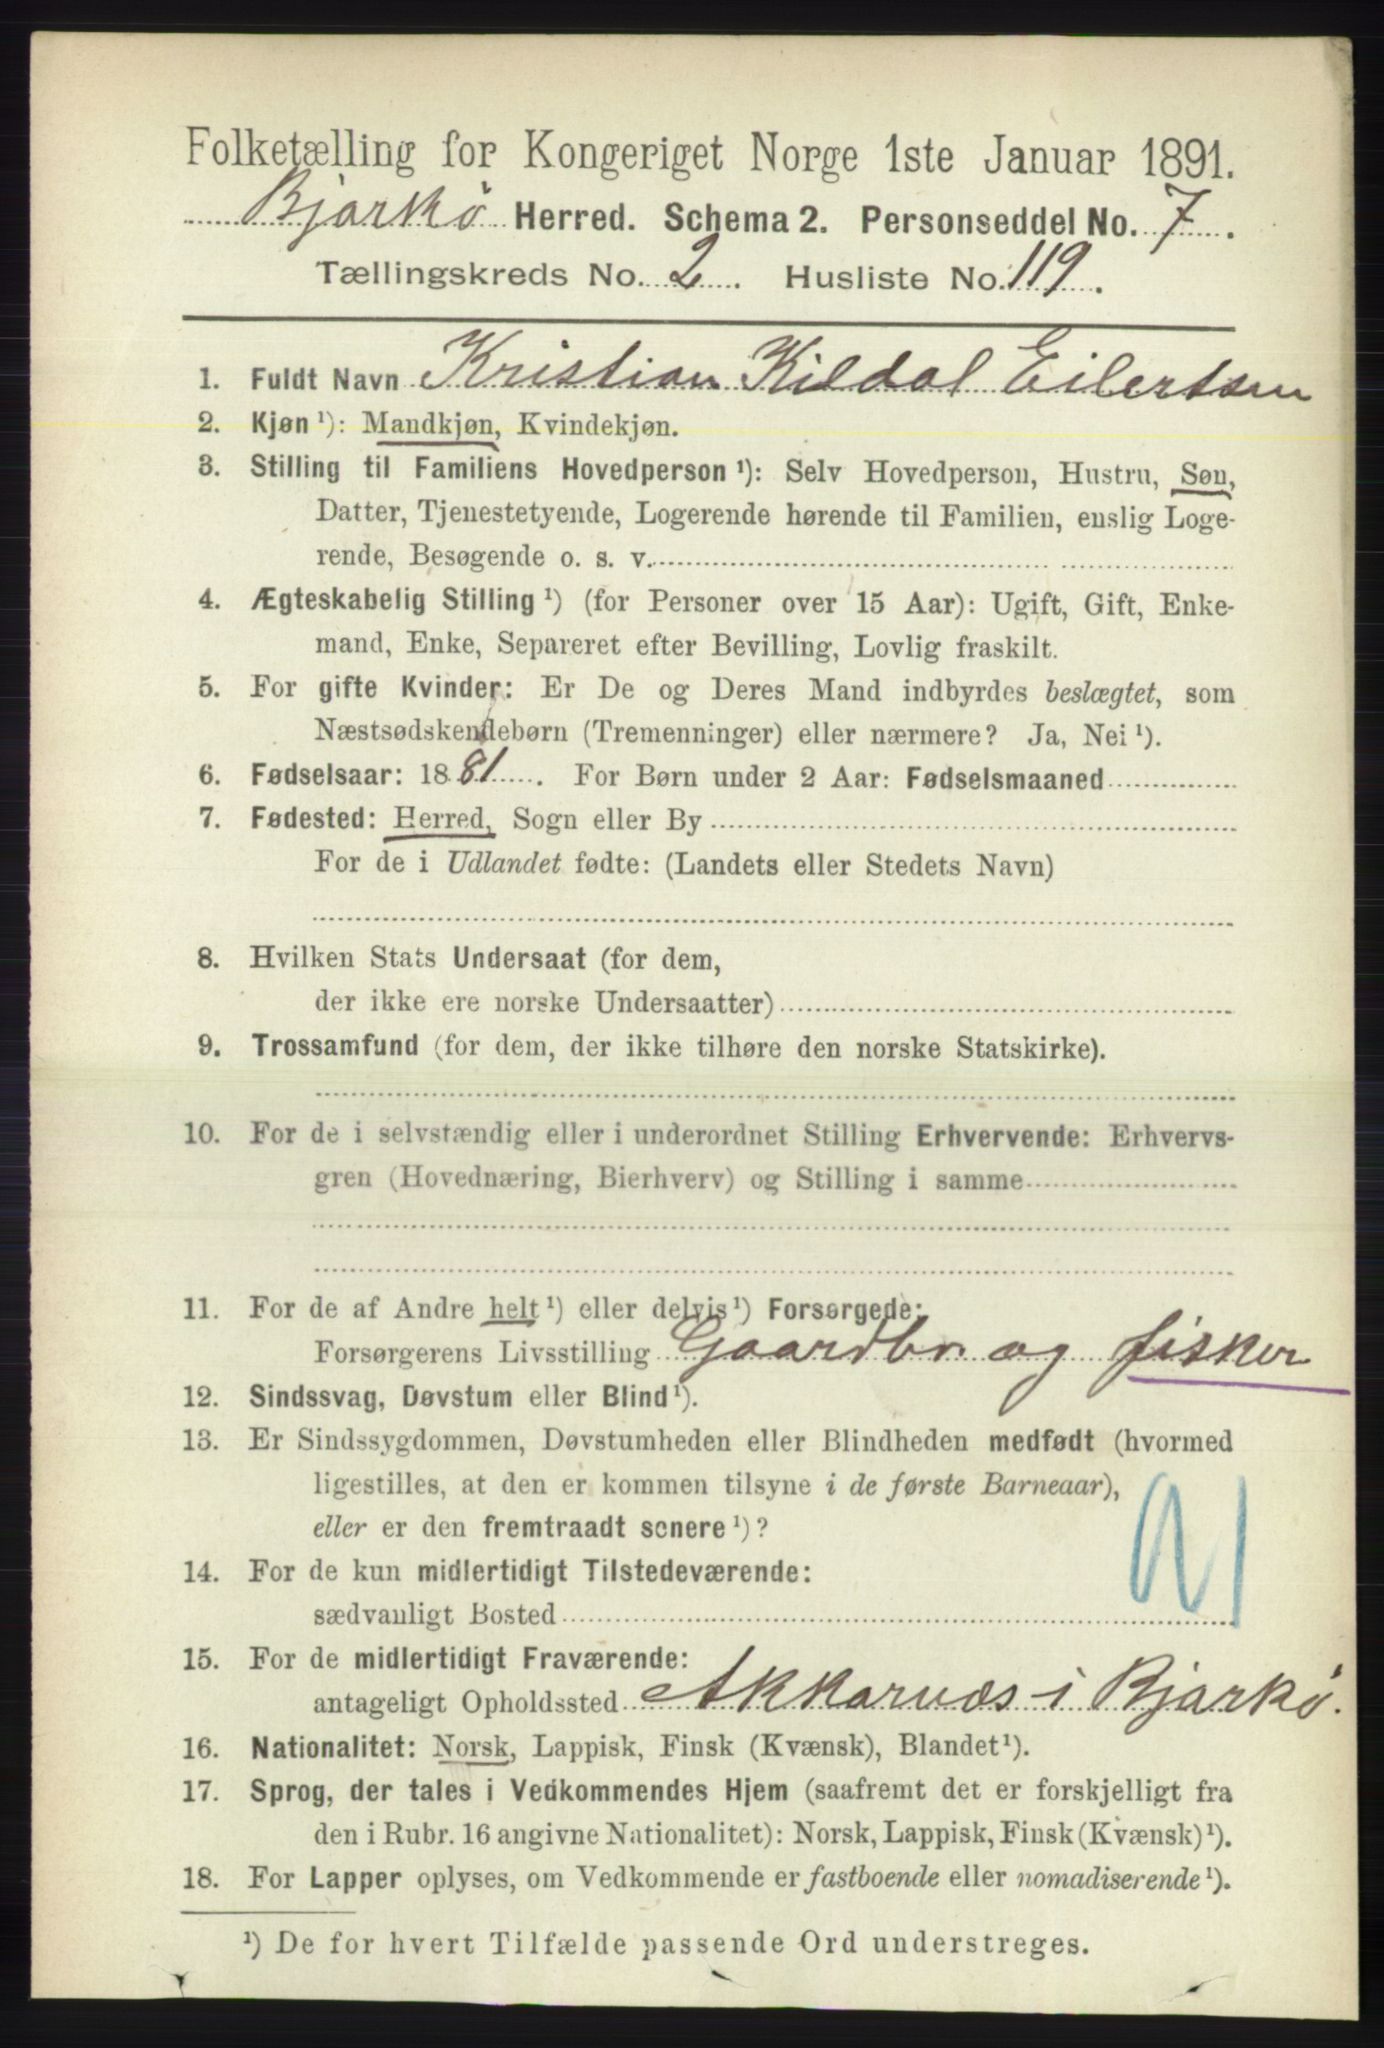 Folketælling for Kongeriget Norge 1ste Januar 1891.
Bjarkø Herred. Schema 2. Personseddel No. 7.
Tællingskreds No. 2. Husliste No. 119.
1. Fuldt Navn Kristian Kildal Eilertsen
2. Kjøn ¹): Mandkjøn, Kvindekjøn.
3. Stilling til Familiens Hovedperson ¹): Selv Hovedperson, Hustru, Søn,
Datter, Tjenestetyende, Logerende hørende til Familien, enslig Loge-
rende, Besøgende o. s. v.
4. Ægteskabelig Stilling ¹) (for Personer over 15 Aar): Ugift, Gift, Enke-
mand, Enke, Separeret efter Bevilling, Lovlig fraskilt.
5. For gifte Kvinder: Er De og Deres Mand indbyrdes beslægtet, som
Næstsødskendebørn (Tremenninger) eller nærmere? Ja, Nei ¹).
6. Fødselsaar: 1881. For Børn under 2 Aar: Fødselsmaaned
7. Fødested: Herred, Sogn eller By
For de i Udlandet fødte: (Landets eller Stedets Navn)
8. Hvilken Stats Undersaat (for dem,
der ikke ere norske Undersaatter)
9. Trossamfund (for dem, der ikke tilhøre den norske Statskirke).
10. For de i selvstændig eller i underordnet Stilling Erhvervende: Erhvervs-
gren (Hovednæring, Bierhverv) og Stilling i samme
11. For de af Andre helt ¹) eller delvis ¹) Forsørgede:
Forsørgerens Livsstilling Gaardbr. og fisker
12. Sindssvag, Døvstum eller Blind ¹).
13. Er Sindssygdommen, Døvstumheden eller Blindheden medfødt (hvormed
ligestilles, at den er kommen tilsyne i de første Barneaar),
eller er den fremtraadt senere ¹)?
14. For de kun midlertidigt Tilstedeværende:
sædvanligt Bosted
91
15. For de midlertidigt Fraværende:
antageligt Opholdssted Akkarnæs i Bjarkø.
16. Nationalitet: Norsk, Lappisk, Finsk (Kvænsk), Blandet ¹).
17. Sprog, der tales i Vedkommendes Hjem (saafremt det er forskjelligt fra
den i Rubr. 16 angivne Nationalitet): Norsk, Lappisk, Finsk (Kvænsk) ¹).
18. For Lapper oplyses, om Vedkommende er fastboende eller nomadiserende ¹).
¹) De for hvert Tilfælde passende Ord understreges.